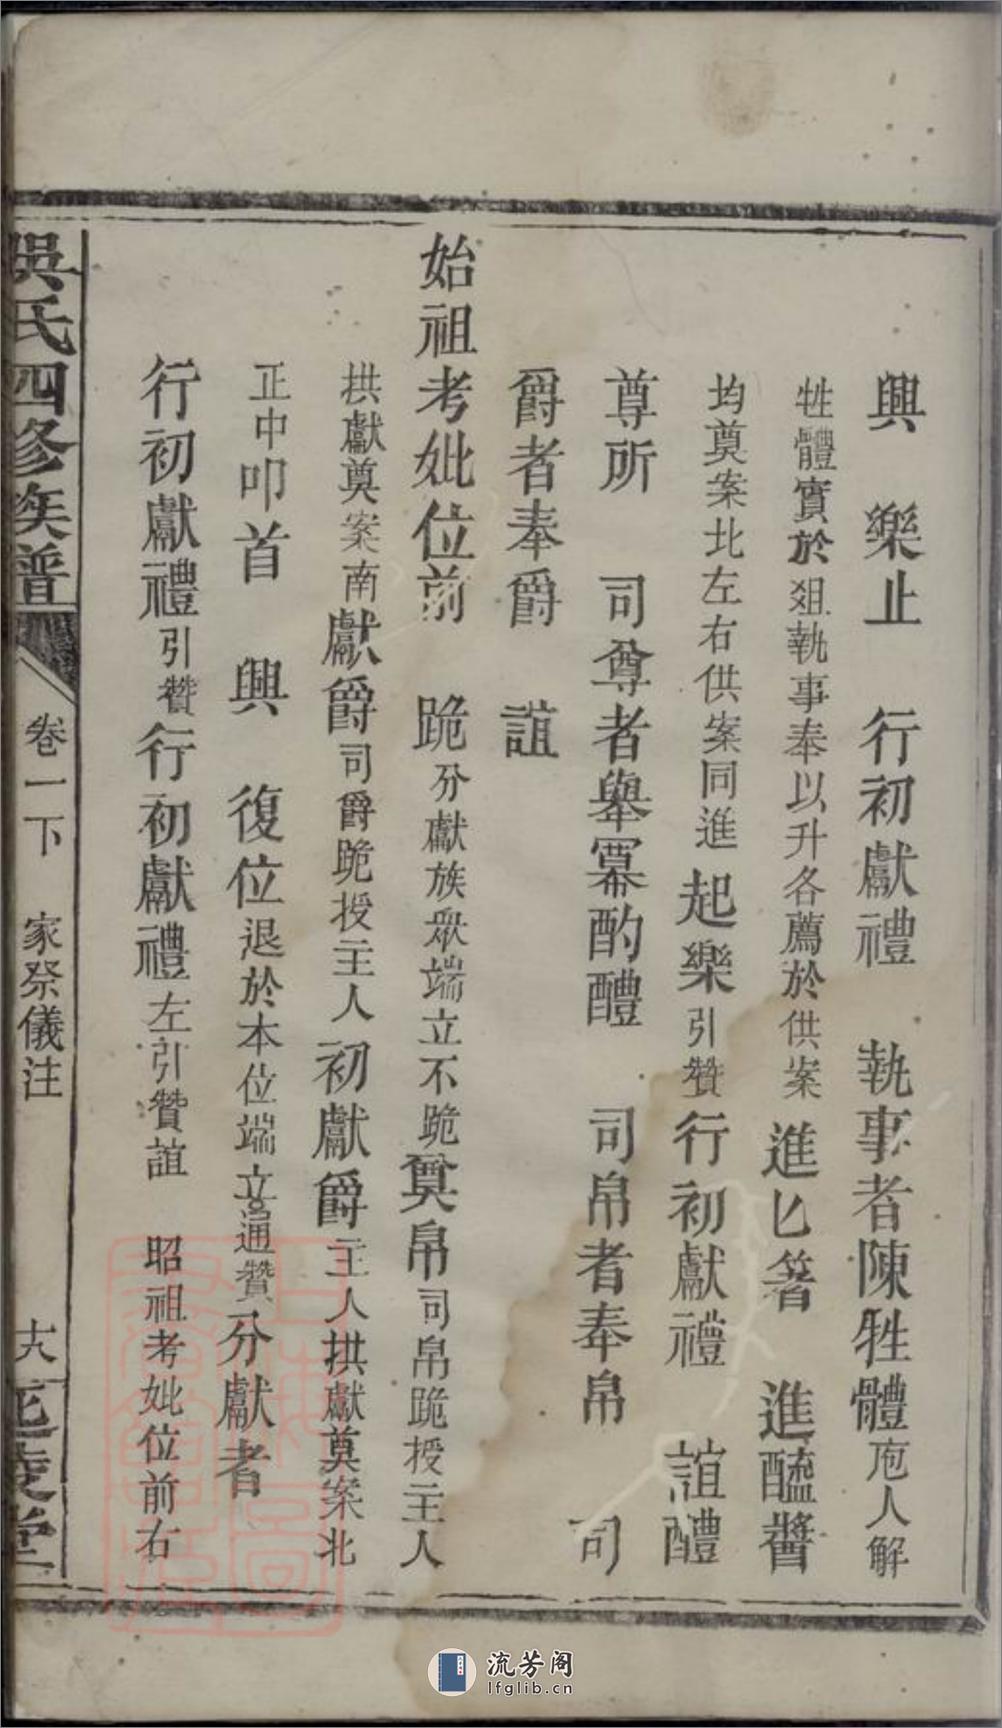 興　樂止　行初獻禮　執事者陳牲體庖人解
牲體實於俎執事奉以升各薦於供案進匕箸　進醯醬
均奠案北左右供案同進起樂引贊行初獻禮　誼醴
尊所　司尊者舉冪酌醴　司帛者奉帛　司
爵者奉爵　誼
始祖考妣位前　跪分獻族眾端立不跪奠帛司帛跪授主人
拱獻奠案南獻爵司爵跪授主人初獻爵主人拱獻奠案北
正中叩首　興　復位退於本位端立通贊分獻者
行初獻禮引贊行初獻禮左引贊誼　昭祖考妣位前右
吳氏四修族譜　卷一下　家祭儀注　十八　堂
流芳阁
lfglib.cn